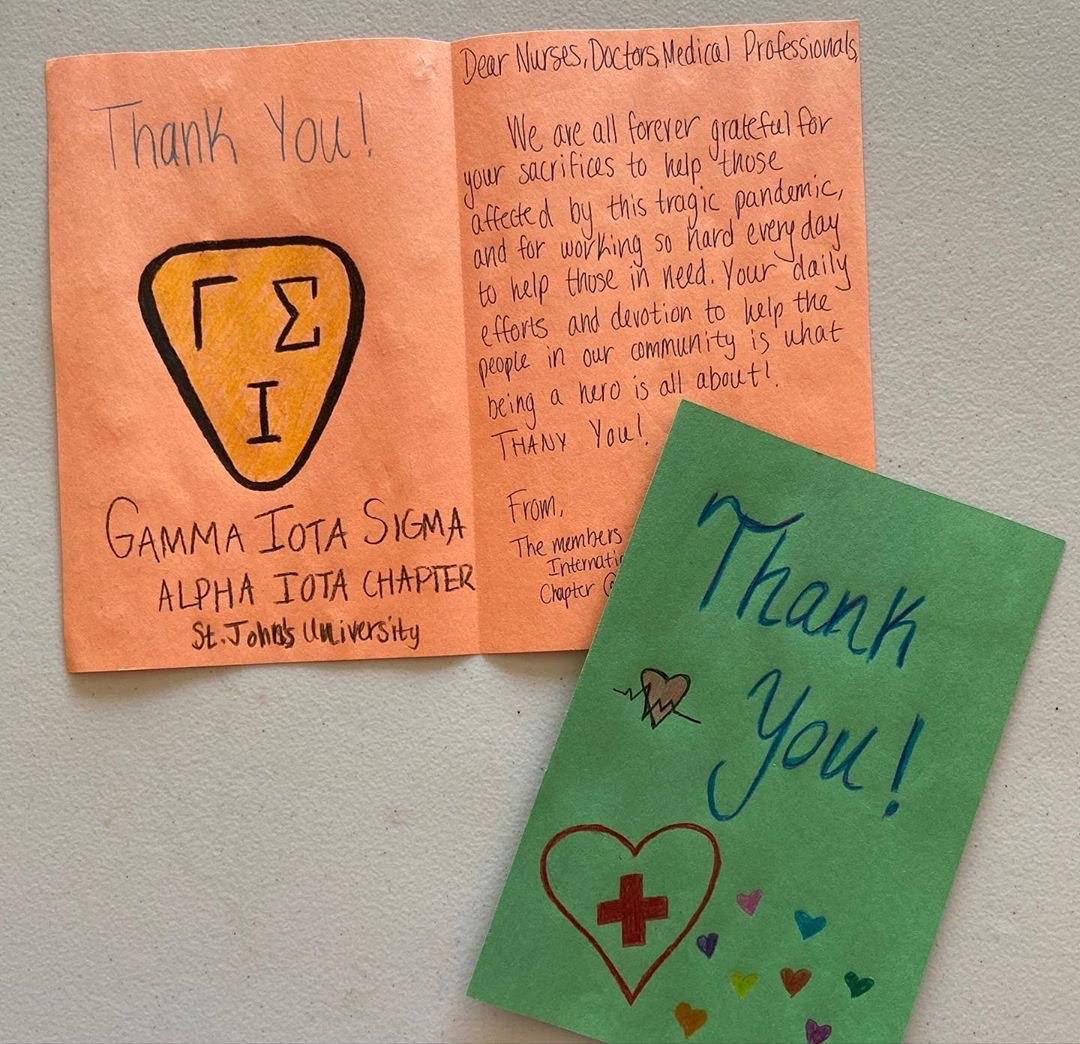 Thank You!
Γ Σ
I
GAMMA IOTA SIGMA
ALPHA IOTA CHAPTER
St. John's University
Dear Nurses, Doctors, Medical Professionals,
We are all forever grateful for
your sacrifices to help those
affected by this tragic pandemic,
and for working so hard every day
to help those in need. Your daily
efforts and devotion to help the
people in our community is what
being a hero is all about!
THANK You!
From,
The members
Chapter
Thank
You!